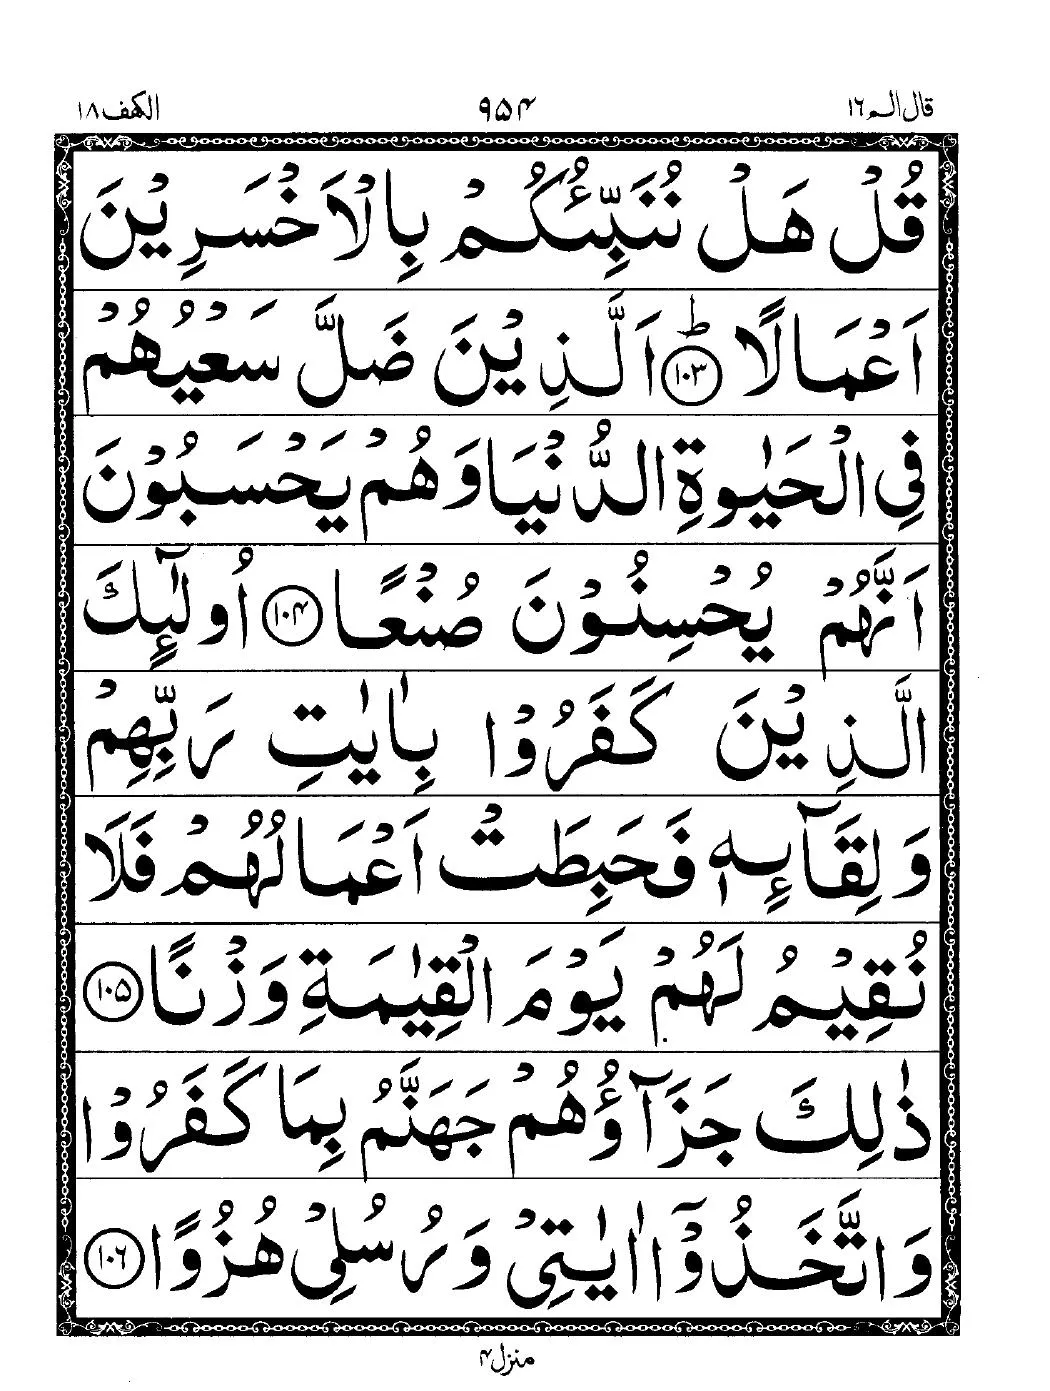 قال الـم ١٦ ۹۵۴ الكهف ١٨
قُلْ هَلْ نُنَبِّئُكُمْ بِالْاَخْسَرِيْنَ
اَعْمَالًا ؕ ﴿۱۰۳﴾ اَلَّذِيْنَ ضَلَّ سَعْيُهُمْ
فِي الْحَيٰوةِ الدُّنْيَا وَهُمْ يَحْسَبُوْنَ
اَنَّهُمْ يُحْسِنُوْنَ صُنْعًا ﴿۱۰۴﴾ اُولٰٓئِكَ
الَّذِيْنَ كَفَرُوْا بِاٰيٰتِ رَبِّهِمْ
وَلِقَآئِهٖ فَحَبِطَتْ اَعْمَالُهُمْ فَلَا
نُقِيْمُ لَهُمْ يَوْمَ الْقِيٰمَةِ وَزْنًا ﴿۱۰۵﴾
ذٰلِكَ جَزَآؤُهُمْ جَهَنَّمُ بِمَا كَفَرُوْا
وَاتَّخَذُوْٓا اٰيٰتِيْ وَرُسُلِيْ هُزُوًا ﴿۱۰۶﴾
منزل ۴